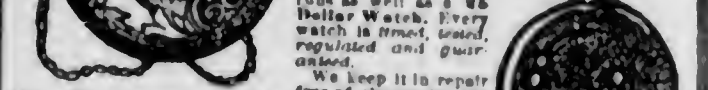 as well as a
Dollar Watch. Every
watch is timed, tested,
regulated and guar-
anteed.
We keep it in repair